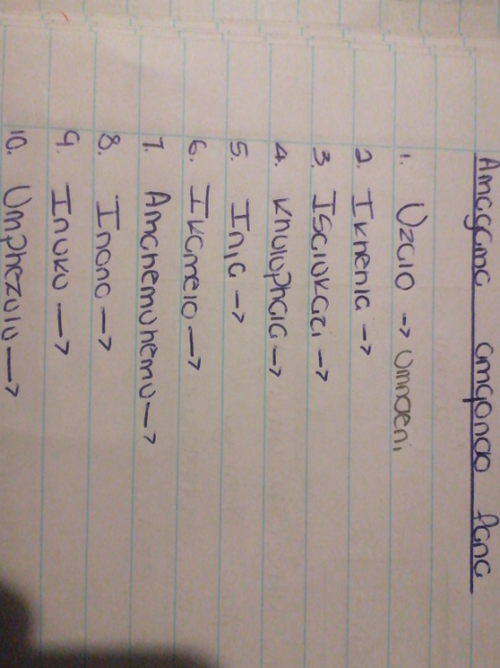 Amagama amqondo fana
1. Uzalo → umndeni
2. Ikhehla →
3. Isalukazi →
4. Khuluphala →
5. Inja →
6. Ikamelo →
7. Amahemuhemu →
8.
9. Inuku →
10. Umphezulu →